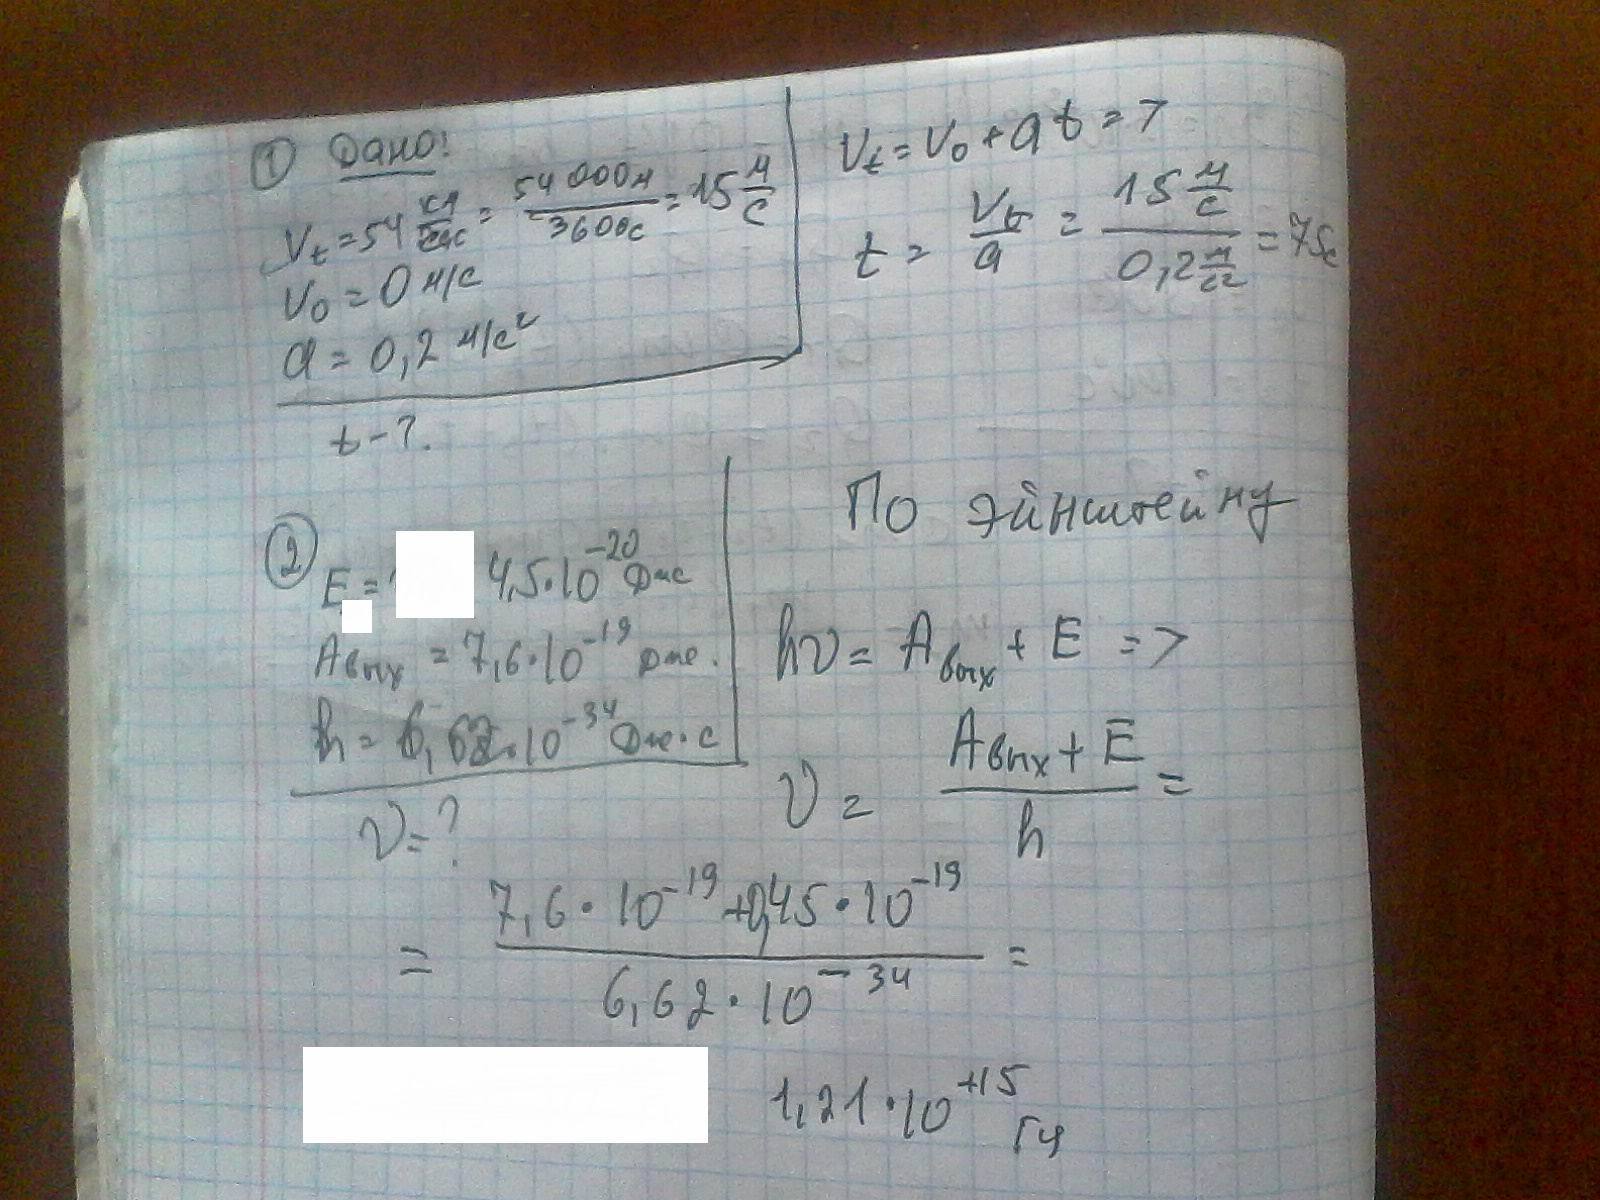 ① Дано:
Vt = 54 км/час = 54000м/3600с = 15 м/с
V0 = 0 м/с
a = 0,2 м/с²
t - ?.
Vt = V0 + at =>
t = Vt/a = 15 м/с / 0,2 м/с² = 75с
②
E = 4,5·10⁻²⁰ Дж
Aвых = 7,6·10⁻¹⁹ Дж.
h = 6,62·10⁻³⁴ Дж·с
ν = ?
По Эйнштейну
hν = Aвых + E =>
ν = Aвых + E / h =
= 7,6·10⁻¹⁹ + 0,45·10⁻¹⁹ / 6,62·10⁻³⁴ =
1,21·10⁺¹⁵ Гц